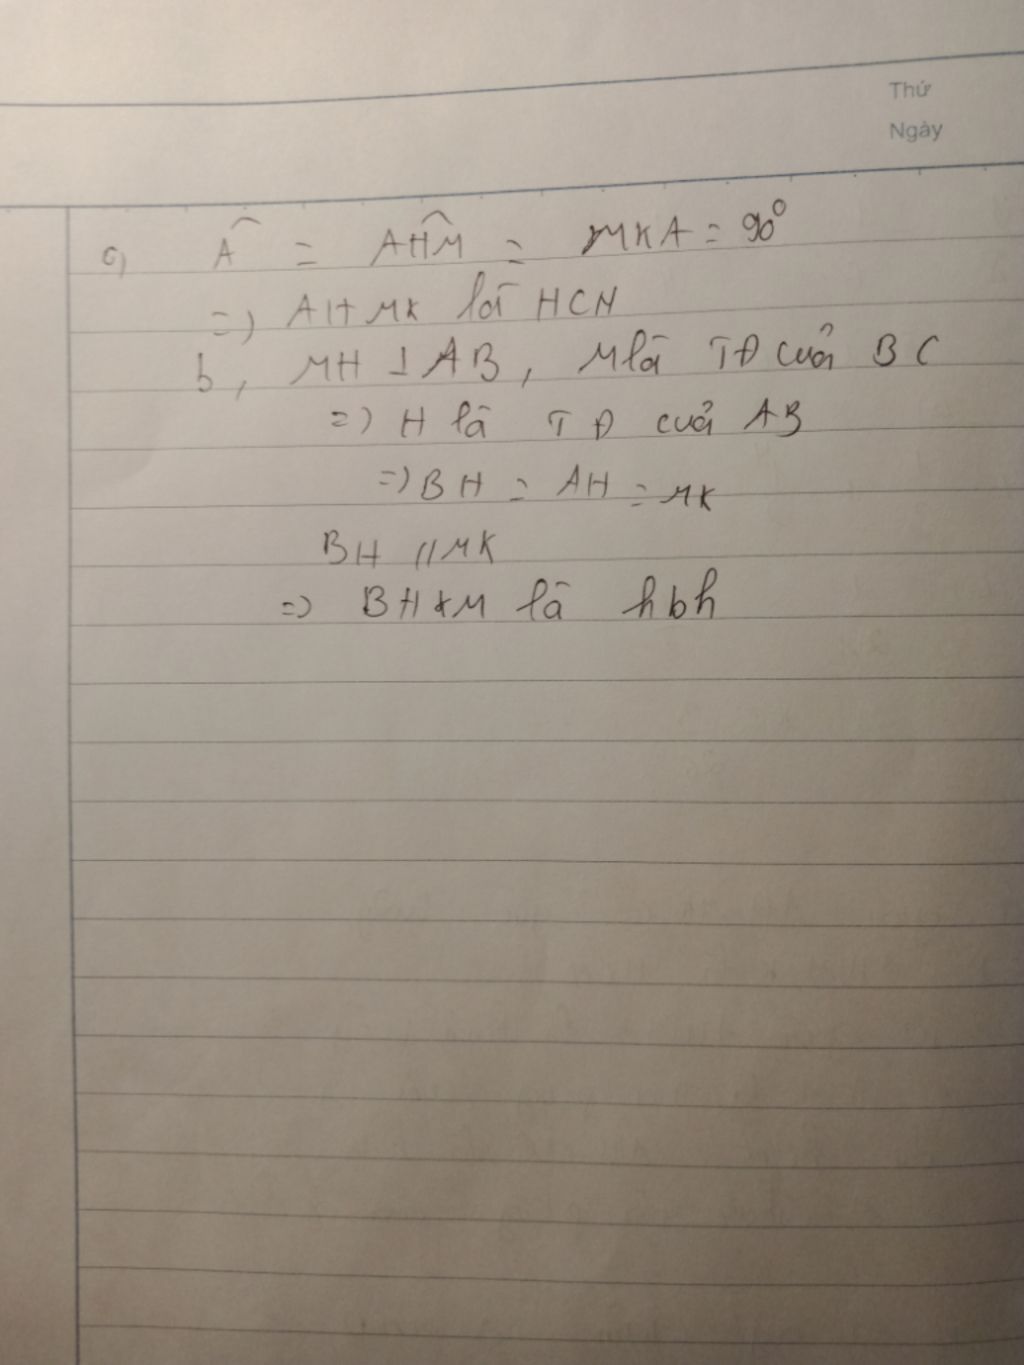 Thứ
Ngày
a, Â = AHM̂ = MKA = 90°
=) AHMK là HCN
b, MH ⊥ AB, M là TĐ của BC
=) H là TĐ của AB
=) BH = AH = MK
BH // MK
=) BHKM là hbh